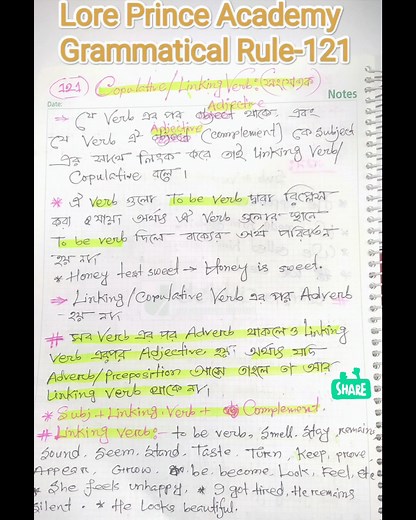 Lore Prince Academy
Grammatical Rule-121
121 Copulative/Linking Verb:
Date:
Notes
Adjective
⇒ যে Verb এর পর object থাকে এবং
Adjective
যে Verb ঐ object (complement) কে Subject
এর সাথে লিংক করে তাই Linking Verb/
Copulative বলে।
* ঐ Verb গুলো To be verb দ্বারা
করা যায় অর্থাৎ ঐ Verb গুলোর স্থানে
To be verb দিলে বাক্যের অর্থ পরিবর্তন
হয় না।
* Honey test sweet → Honey is sweet.
⇒ Linking/Copulative Verb এর পর Adverb
হয় না।
# সব Verb এর পর Adverb থাকলেও Linking
Verb এরপর Adjective হয়। অর্থাৎ যদি
Adverb/Preeposition আসে তাহলে তা আর
Linking Verb থাকে না।
SHARE
* Subj + Linking Verb + Complement.
# Linking verb:- to be verb, Smell, Stay, remain
Sound, Seem, Stand, Taste, Turn, Keep, prove
Appear, Grow, be, become, Look, Feel, etc
* She feels unhappy, * I got tired, He remains
silent. * He Looks beautiful.